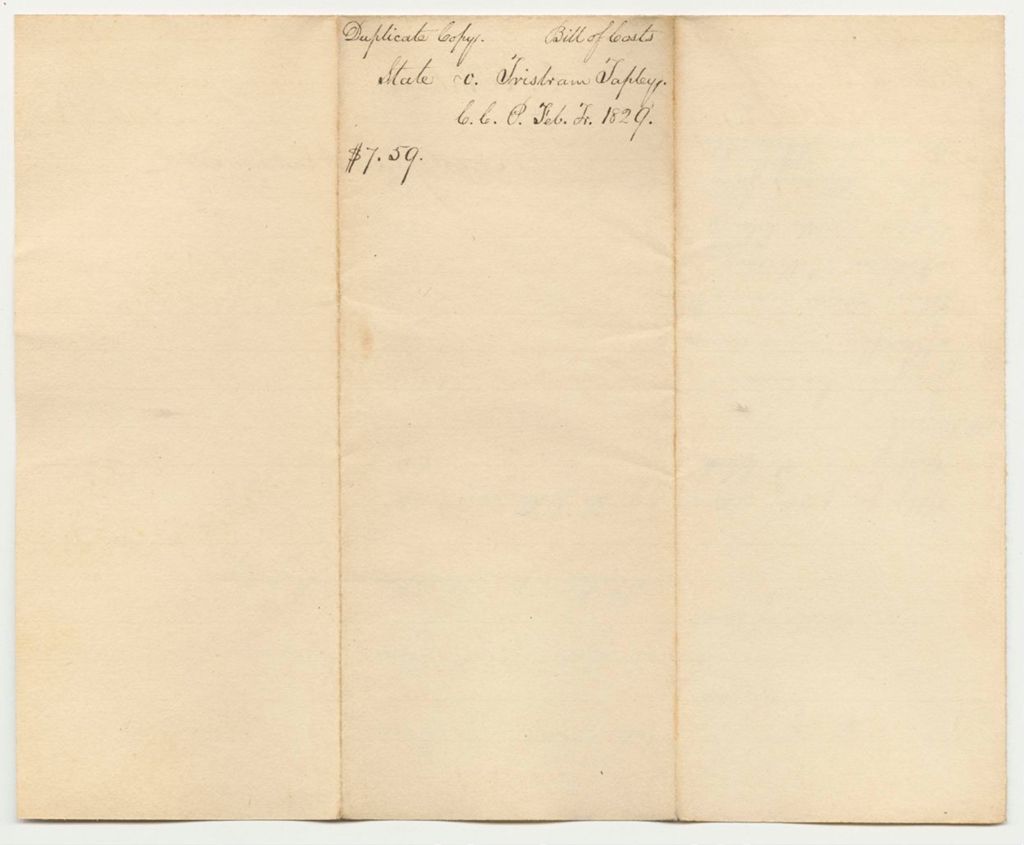 Duplicate Copy. Bill of Costs
State v. Tristram Tapley.
C. C. P. Feb. Tr. 1829.
$7.59.